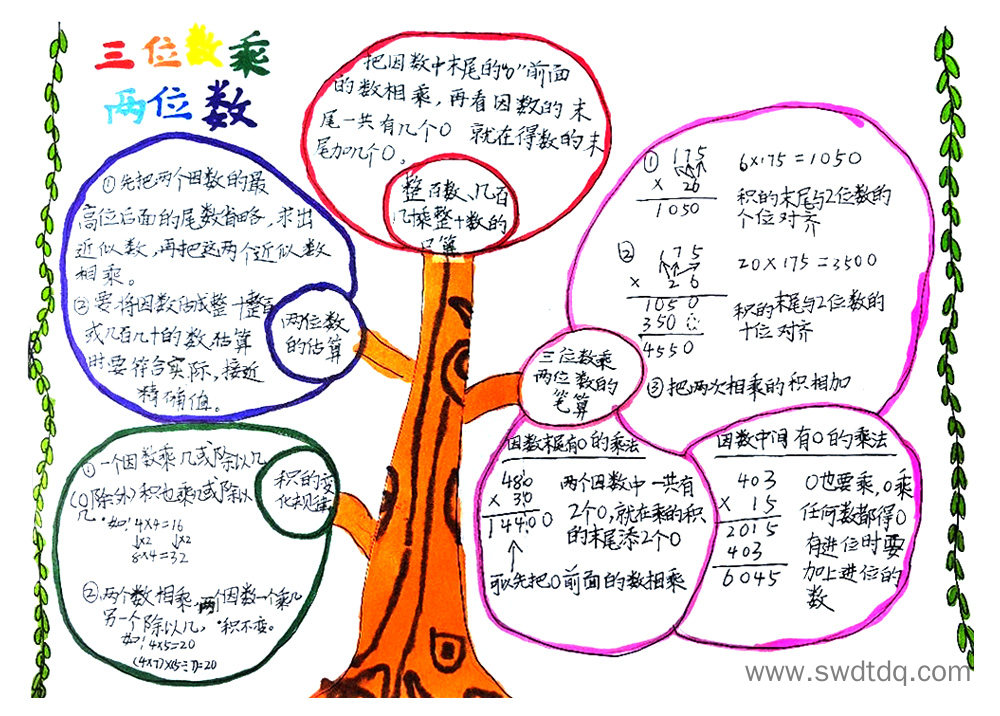 三位数乘
两位数
把因数中末尾的“0”前面
的数相乘，再看因数的末
尾一共有几个0 就在得数的末
尾加几个0。
整百数、几百
几十乘整十数的
口算
①先把两个因数的最
高位后面的尾数省略，求出
近似数，再把这两个近似数
相乘。
②要将因数估成整十整百
或几百几十的数估算
时要符合实际，接近
精确值。
两位数
的估算
① 175
× 26
1050
6×175=1050
积的末尾与2位数的
个位对齐
② 175
× 26
1050
350
4550
20×175=3500
积的末尾与2位数的
十位对齐
③把两次相乘的积相加
三位数乘
两位数的
笔算
①一个因数乘几或除以几
(0除外)积也乘几或除以
几。如：4×4=16
↓×2 ↓×2
8×4=32
②两个数相乘，两个因数一个乘几
另一个除以几，积不变。
如：4×5=20
积的变
化规律
因数末尾有0的乘法
480
× 30
14400
两个因数中一共有
2个0，就在乘的积
的末尾添2个0
可以先把0前面的数相乘
因数中间有0的乘法
403
× 15
2015
403
6045
0也要乘，0乘
任何数都得0
有进位时要
加上进位的
数
www.swdtdq.com